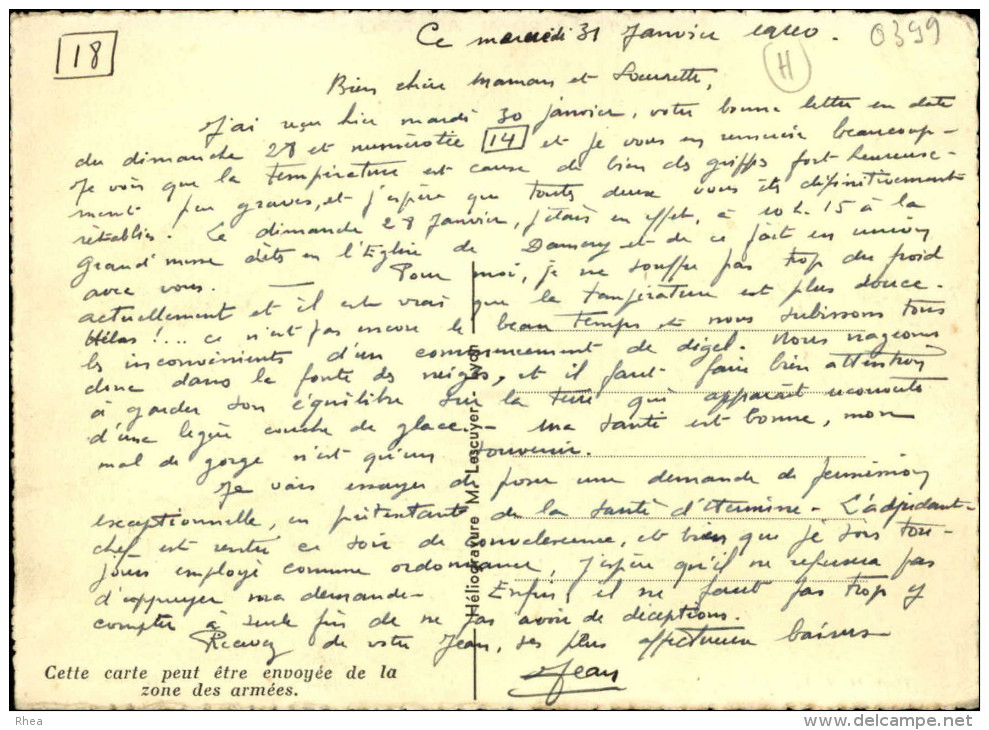 18
Ce mercredi 31 Janvier 1940.
0399
H
Bien chère Maman et Soeurette,
J'ai reçu hier mardi 30 janvier, votre bonne lettre en date
du dimanche 28 et numérotée 14 et je vous en remercie beaucoup -
Je vois que la température est cause de bien des grippes fort heureuse-
ment peu graves, et j'espère que toutes deux vous êtes définitivement
rétablies. Ce dimanche 28 Janvier, j'étais en effet, à 10 h. 15 à la
Grand'messe dite en l'Eglise de Damery et de ce fait en union
avec vous. — Pour moi, je ne souffre pas trop du froid
actuellement et il est vrai que la température est plus douce.
Hélas!... ce n'est pas encore le beau temps et nous subissons tous
les inconvénients d'un commencement de dégel. Nous nageons
donc dans la fonte des neiges, et il faut faire bien attention
à garder son équilibre sur la terre qui apparaît recouverte
d'une légère couche de glace. - Ma santé est bonne, mon
mal de gorge n'est qu'un souvenir.
Je vais essayer de poser une demande de permission
exceptionnelle, en prétextant de la santé d'Hermine - L'adjudant-
chef est rentré ce soir de convalescence, et bien que je sois tou-
jours employé comme ordonnance, j'espère qu'il ne refusera pas
d'appuyer ma demande - Enfin, il ne faut pas trop y
compter à seule fin de ne pas avoir de déceptions.
Recevez de votre Jean, ses plus affectueux baisers
Jean
Cette carte peut être envoyée de la
zone des armées.
Héliogravure M. Lescuyer Lyon
Rhea
www.delcampe.net